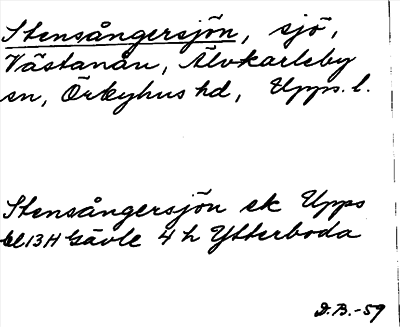 Stensångersjön, sjö,
Västanån, Älvkarleby
sn, Örbyhus hd, Upps. l.
Stensångersjön ek Upps
bl 13H Gävle 4 h Ytterboda
D.B.-59